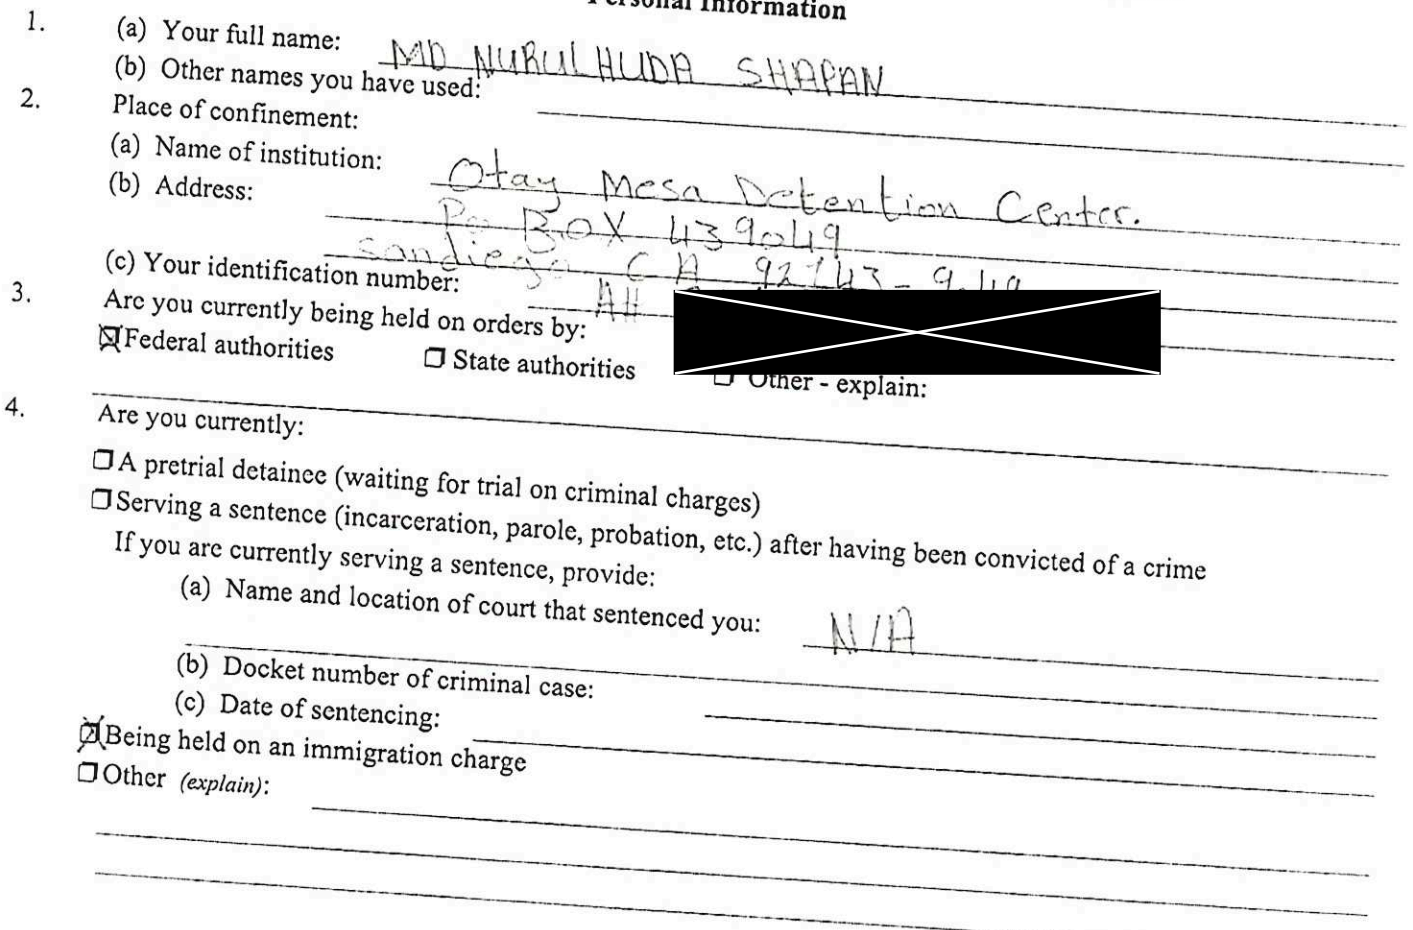 Personal Information
1. (a) Your full name: MD NURUL HUDA SHAPAN
(b) Other names you have used:
2. Place of confinement:
(a) Name of institution: Otay Mesa Detention Center.
(b) Address:
Po BOX 439049
sandiego CA 92143-9049
(c) Your identification number: A#
3. Are you currently being held on orders by:
Federal authorities State authorities Other - explain:
4. Are you currently:
A pretrial detainee (waiting for trial on criminal charges)
Serving a sentence (incarceration, parole, probation, etc.) after having been convicted of a crime
If you are currently serving a sentence, provide:
(a) Name and location of court that sentenced you: N/A
(b) Docket number of criminal case:
(c) Date of sentencing:
Being held on an immigration charge
Other (explain):